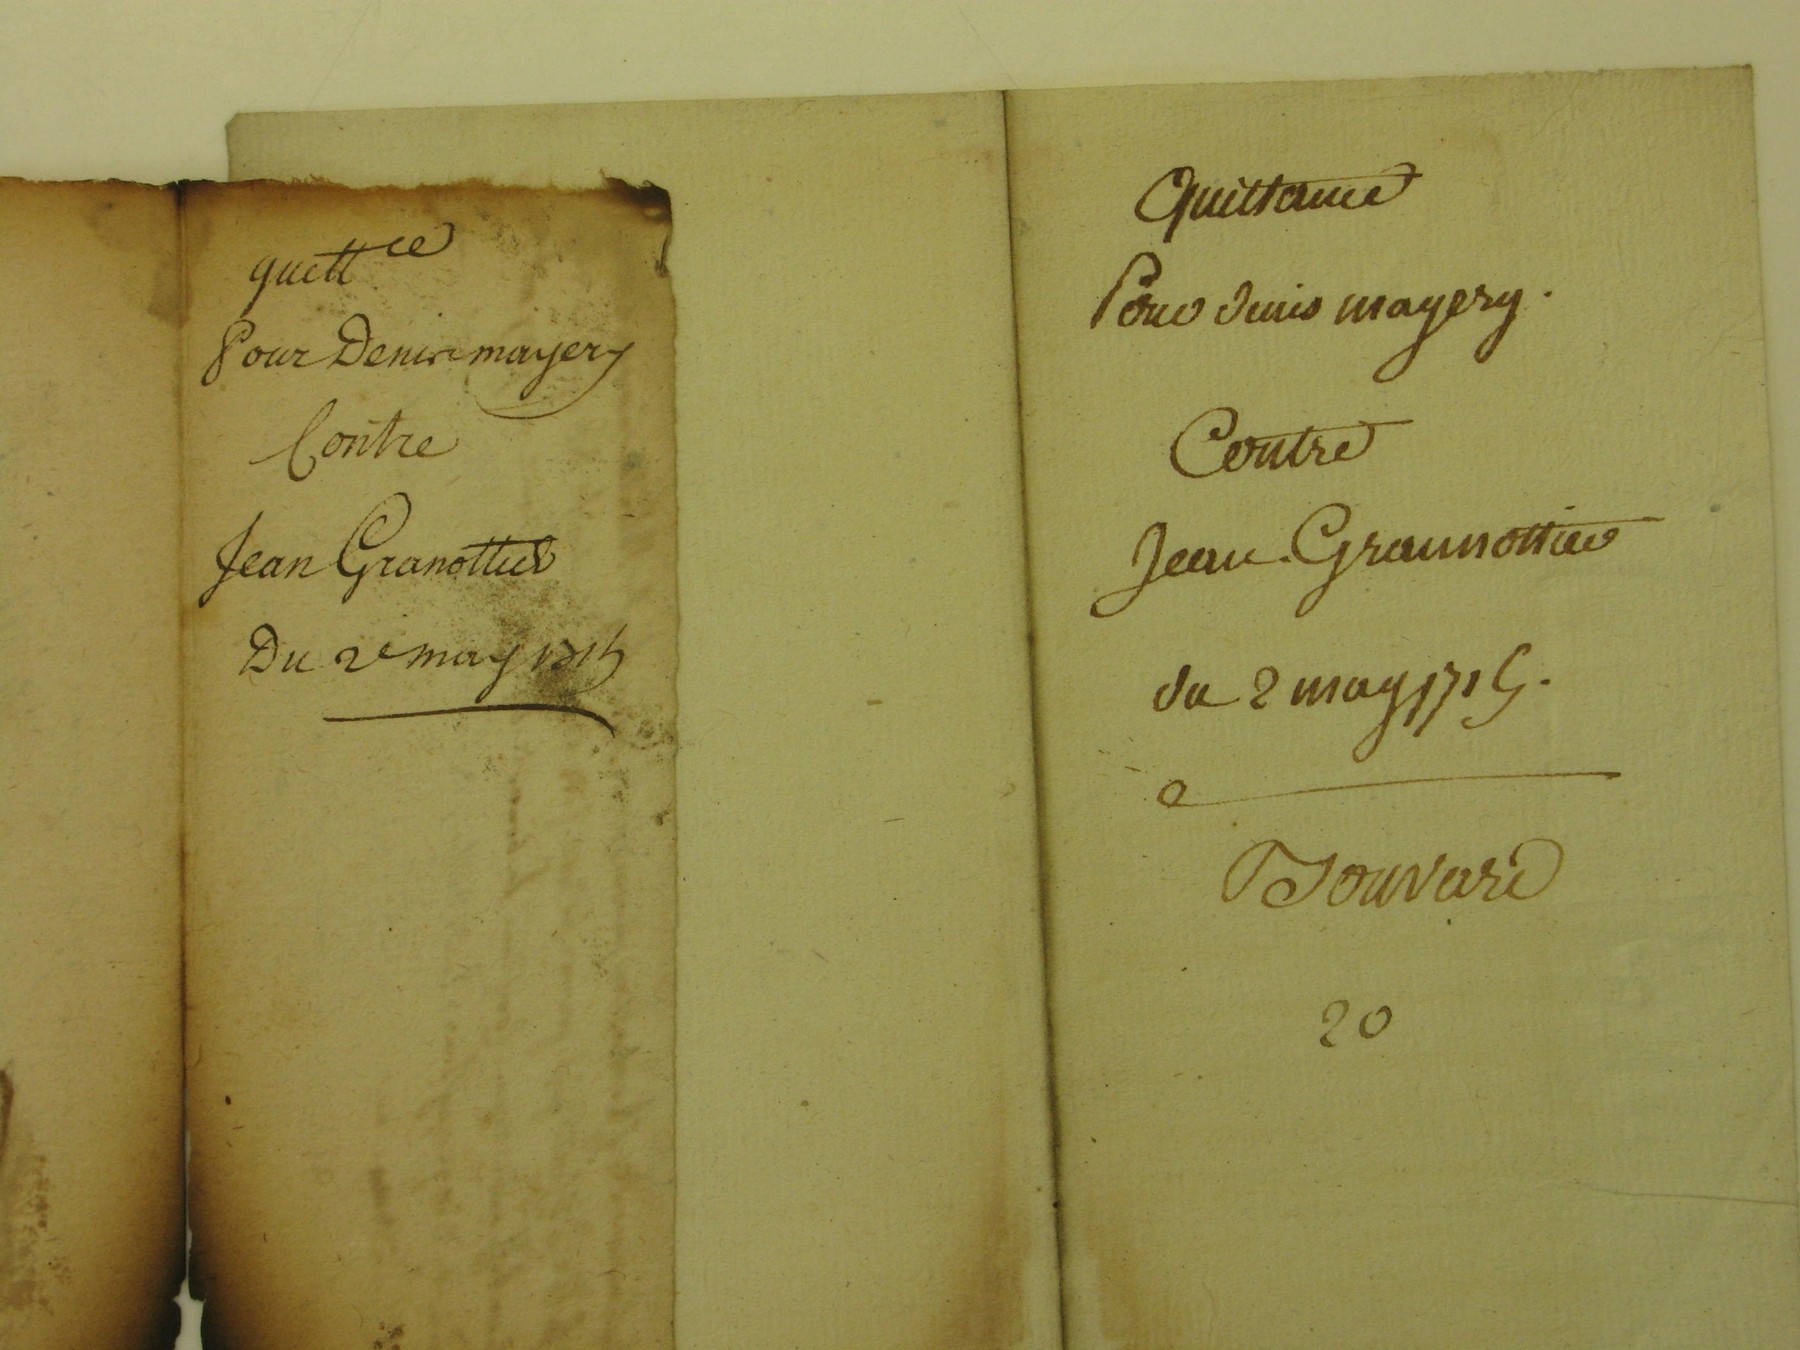 quitt ce
Pour Denis mayery
Contre
Jean Granottier
Du 2e may 1715
Quittance
Pour denis mayery.
Contre
Jean Grannottier
du 2 may 1715.
Bouvard
20